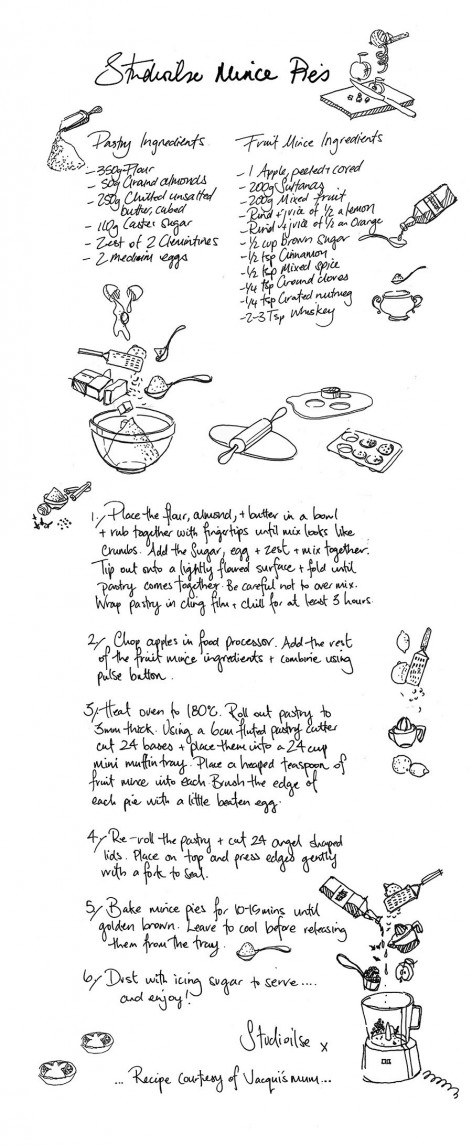 Studioilse Mince Pies
Pastry Ingredients
- 350g Flour
- 50g Grand almonds
- 250g Chilled unsalted
butter, cubed
- 110g Caster sugar
- Zest of 2 Clemintines
- 2 medium eggs
Fruit Mince Ingredients
- 1 Apple, peeled + cored
- 200g Sultanas
- 200g Mixed fruit
- Rind + juice of 1/2 a lemon
- Rind + juice of 1/2 an Orange
- 1/2 cup Brown sugar
- 1/2 tsp Cinnamon
- 1/2 tsp Mixed spice
- 1/4 tsp Ground cloves
- 1/4 tsp Grated nutmeg
- 2-3 Tsp Whiskey
1/ Place the flour, almond, + butter in a bowl
+ rub together with fingertips until mix looks like
crumbs. Add the Sugar, egg + zest + mix together.
Tip out onto a lightly floured surface + fold until
pastry comes together. Be careful not to over mix.
Wrap pastry in cling film + chill for at least 3 hours.
2/ Chop apples in food processor. Add the rest
of the fruit mince ingredients + combine using
pulse button.
3/ Heat oven to 180°C. Roll out pastry to
3mm thick. Using a 6cm fluted pastry cutter
cut 24 bases + place them into a 24 cup
mini muffin tray. Place a heaped teaspoon of
fruit mince into each. Brush the edge of
each pie with a little beaten egg.
4/ Re-roll the pastry + cut 24 angel shaped
lids. Place on top and press edges gently
with a fork to seal.
5/ Bake mince pies for 10-15 mins until
golden brown. Leave to cool before releasing
them from the tray.
6/ Dust with icing sugar to serve....
and enjoy!
Studioilse x
... Recipe courtesy of Jacqui's mum...